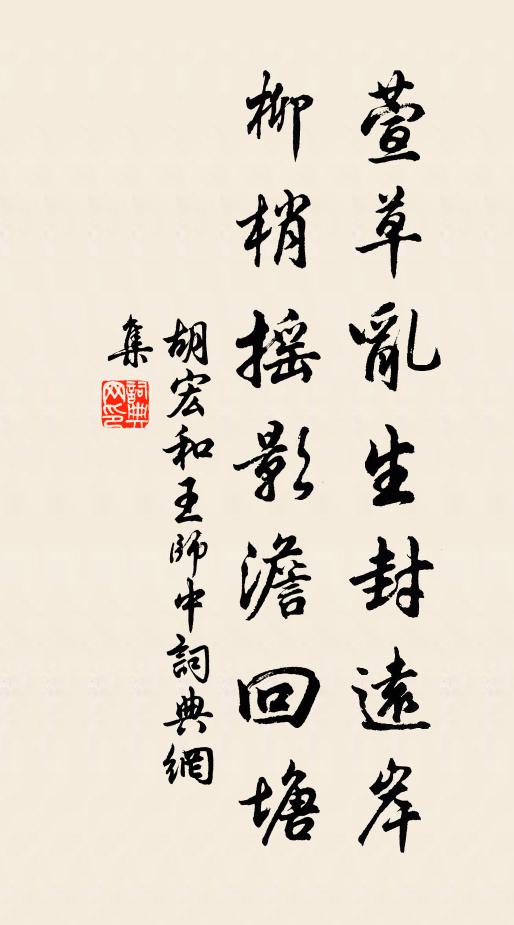 萱草亂生封遠岸
柳梢搖影澹回塘
胡宏和王師中詞典網
集
詞典
网印